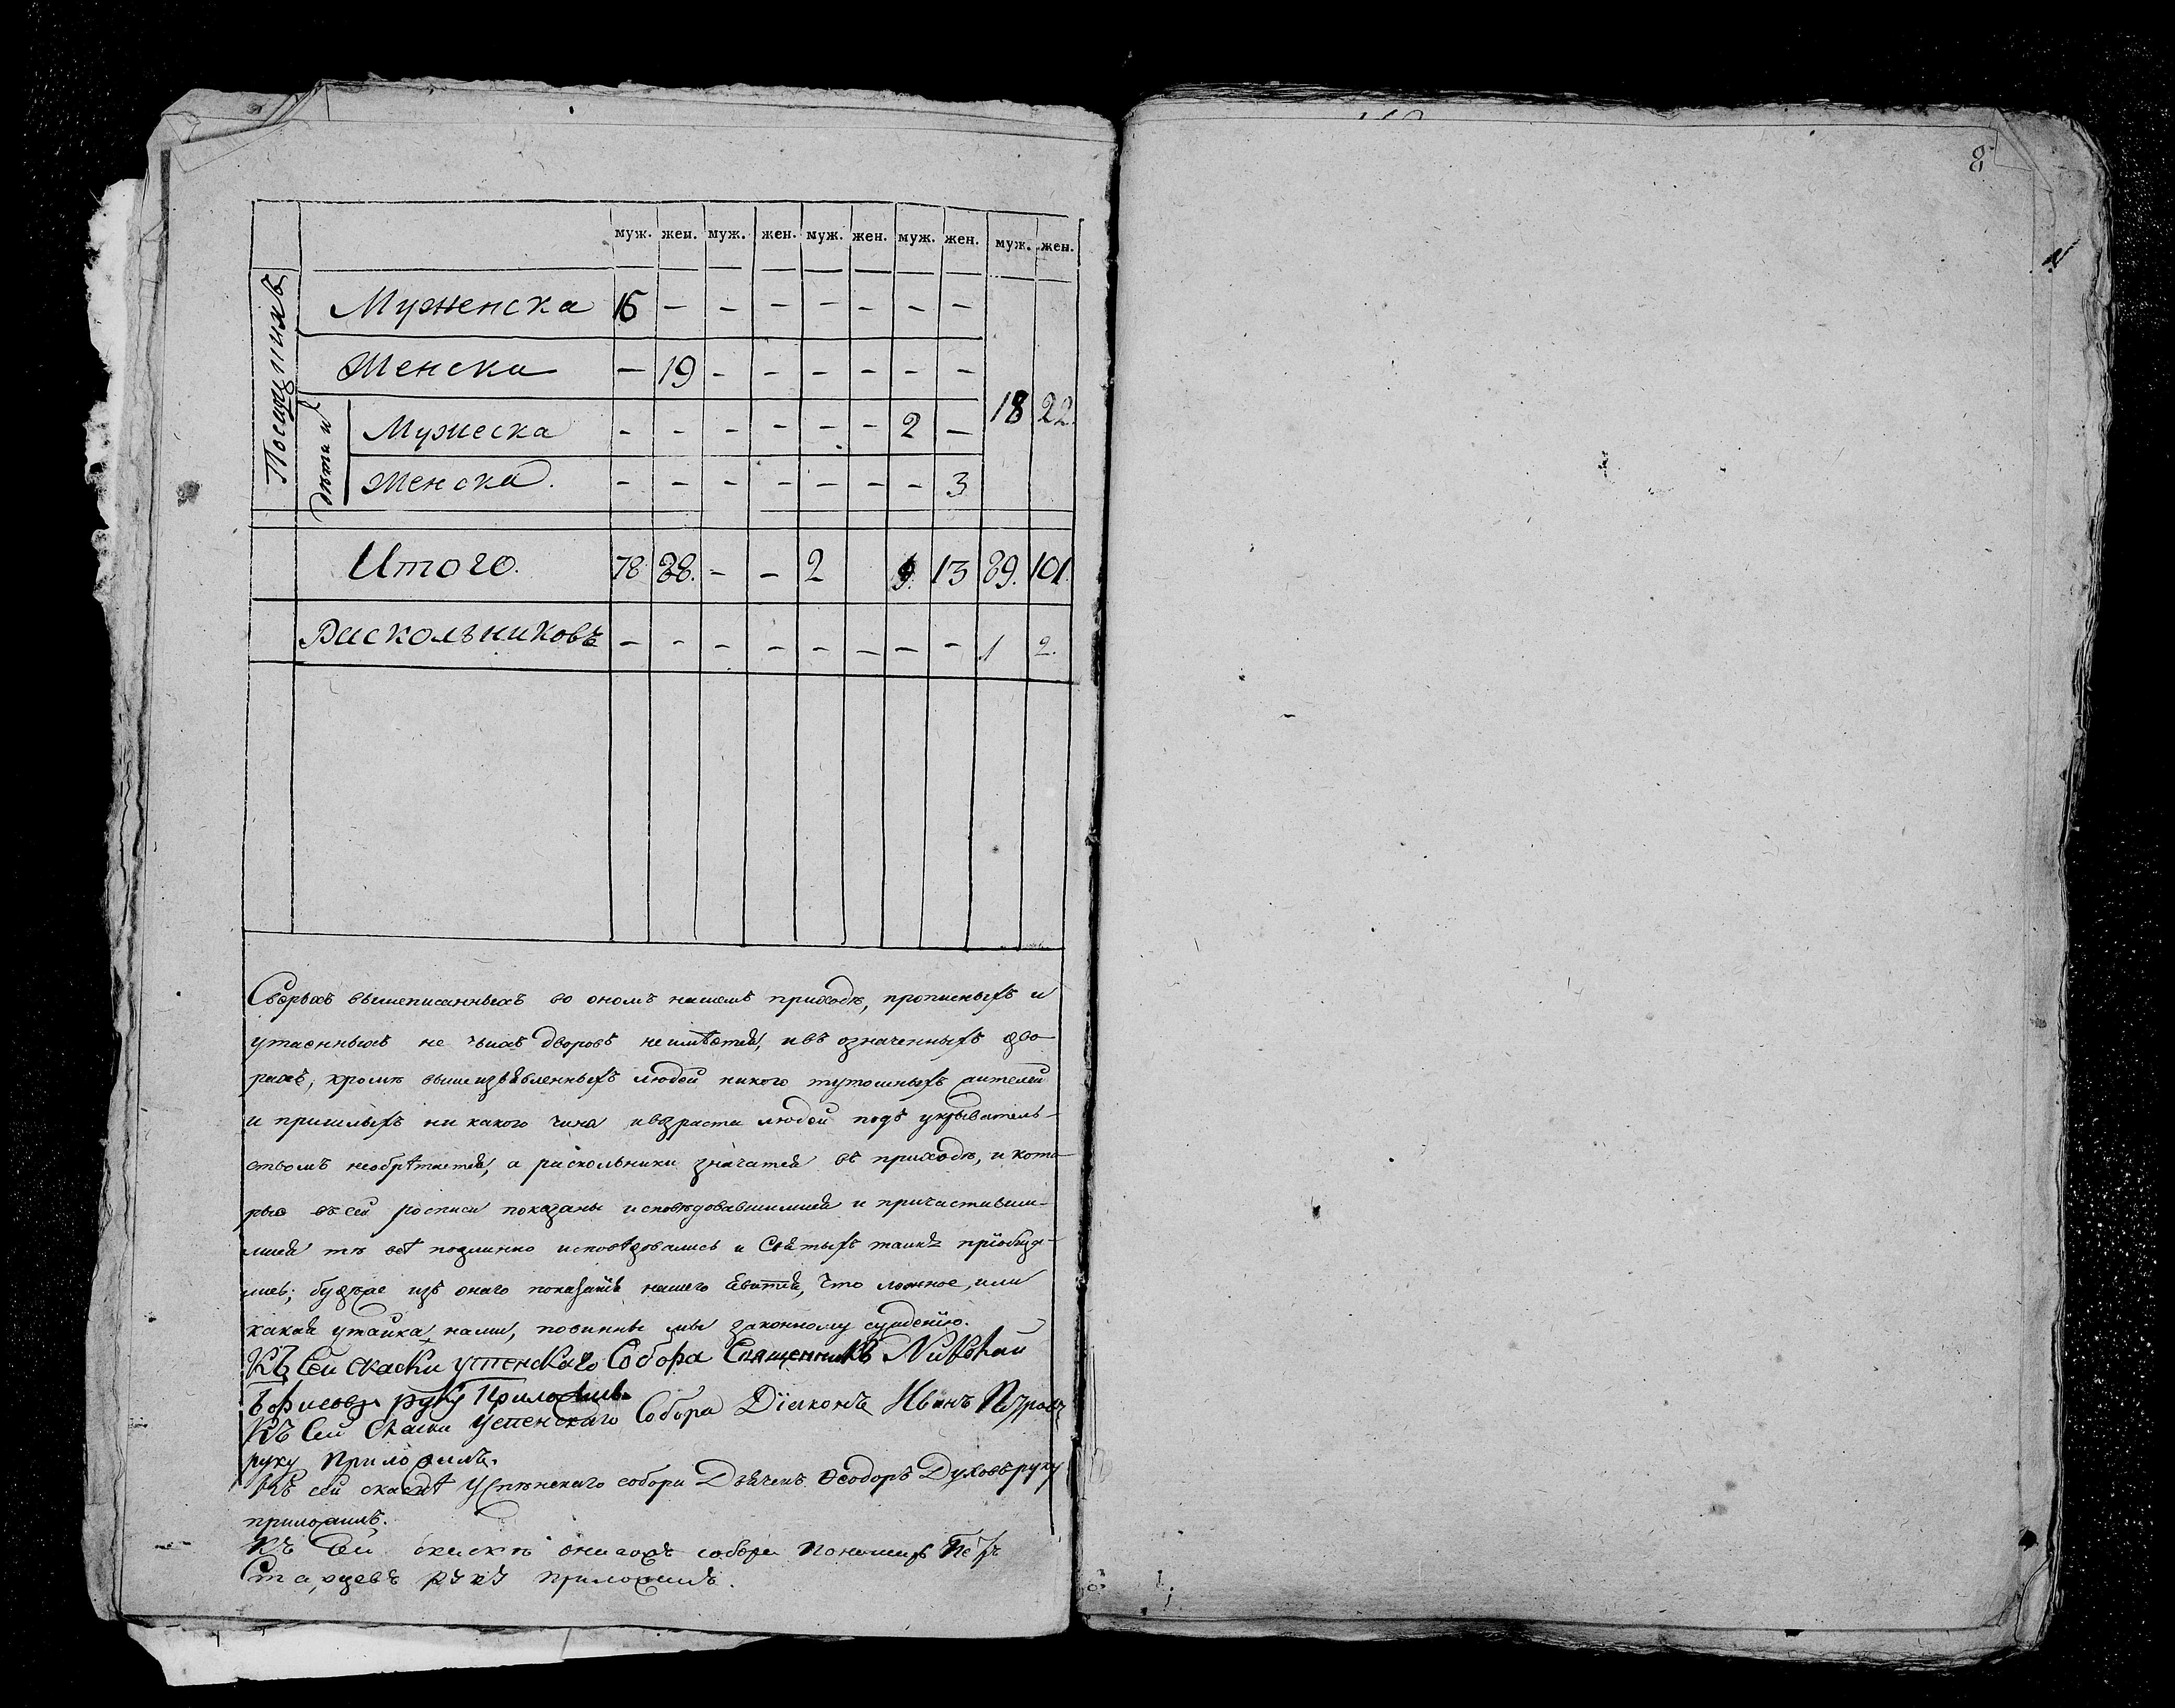 8
муж. жен. муж. жен. муж. жен. муж. жен. муж. жен.
Муженска 16 — — — — — — —
Женска — 19 - - - - - - 18 22.
дѣти и Мужеска - - - - - - 2 -
Женска. - - - - - - - 3
Итого. 78 88. - - 2 9 13 89. 101.
Раскольниковъ - - - - - - - - 1 2.
Сверьхъ вышеписанныхъ во ономъ нашемъ приходѣ, прописныхъ и
утаенныхъ не чьихъ дворовъ неимѣется, ивъ означенныхъ дво-
рахъ, кромѣ вышеизъявленныхъ людей никого тутошныхъ жителей
и пришлыхъ ни какого чина ивозраста людей подъ укрыватель-
ствомъ необрѣтается, а раскольники значатся въ приходѣ, и кото-
рые въсей росписи показаны исповѣдовавшимися и причастивши-
мися тѣ всѣ подлинно исповѣдовались и Святыхъ таинъ приобща-
лись; будеже изъ онаго показанія нашего явится, что ложное, или
какая утайка, нами, повинны мы законному сужденію.
Къ Сей скаски успенскаго Собора Священникъ Николай
Борисовъ руку приложилъ
Къ Сей Скаски Успенскаго Собора Діяконъ Иванъ Петровъ
руку приложилъ.
Къ сей скаскѣ Успѣнскаго собора Дьячекъ Ѳеодоръ Духовъ руку
приложилъ.
Къ Сей скаскѣ онагожъ собора Пономарь Петръ
Старцевъ руку приложилъ.